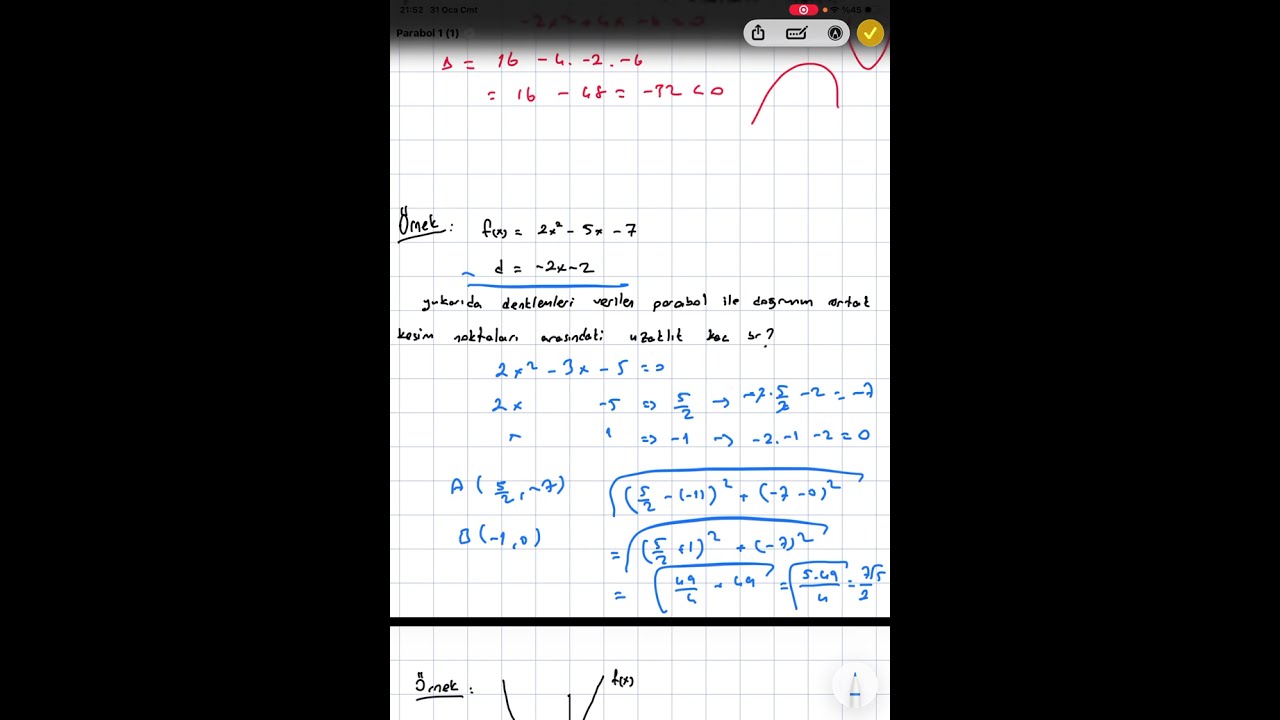 21:52 31 Oca Cmt %45
-2x² + 4x - 6 = 0
Parabol 1 (1)
Δ = 16 - 4. -2. -6
= 16 - 48 = -32 < 0
Örnek: f(x) = 2x² - 5x - 7
d = -2x - 2
yukarıda denklemleri verilen parabol ile doğrunun ortak
kesim noktaları arasındaki uzaklık kaç br?
2x² - 3x - 5 = 0
2x -5 => 5/2 → -2. 5/2 - 2 = -7
1 => -1 → -2. -1 -2 = 0
A (5/2, -7) √((5/2 - (-1))² + (-7 - 0)²
B (-1, 0) = √(5/2 + 1)² + (-7)²
= √49/4 + 49 = √5.49/4 = 7√5/2
Örnek: f(x)